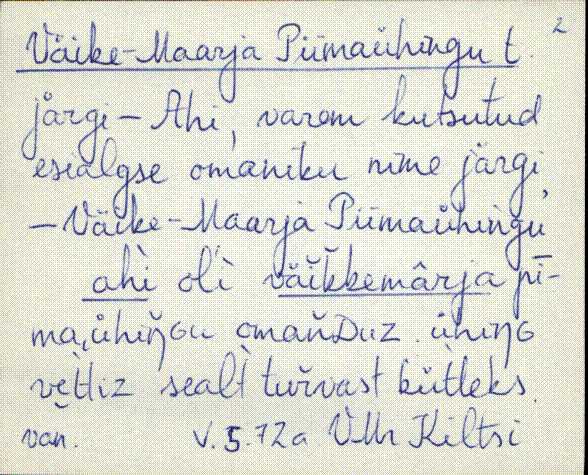 2
Väike-Maarja Piimaühingu t.
järgi – Ahi, varem kutsutud
esialgse omaniku nime järgi
– Väike-Maarja Piimaühingu
ahi oli väik̆kemârja pī-
ma,ühiŋ̆ɢu omaňᴅuz. ühiŋɢ
vettiz sealt̀ tuřvast kütteks.
van. V.5.72a V.Mr Kiltsi